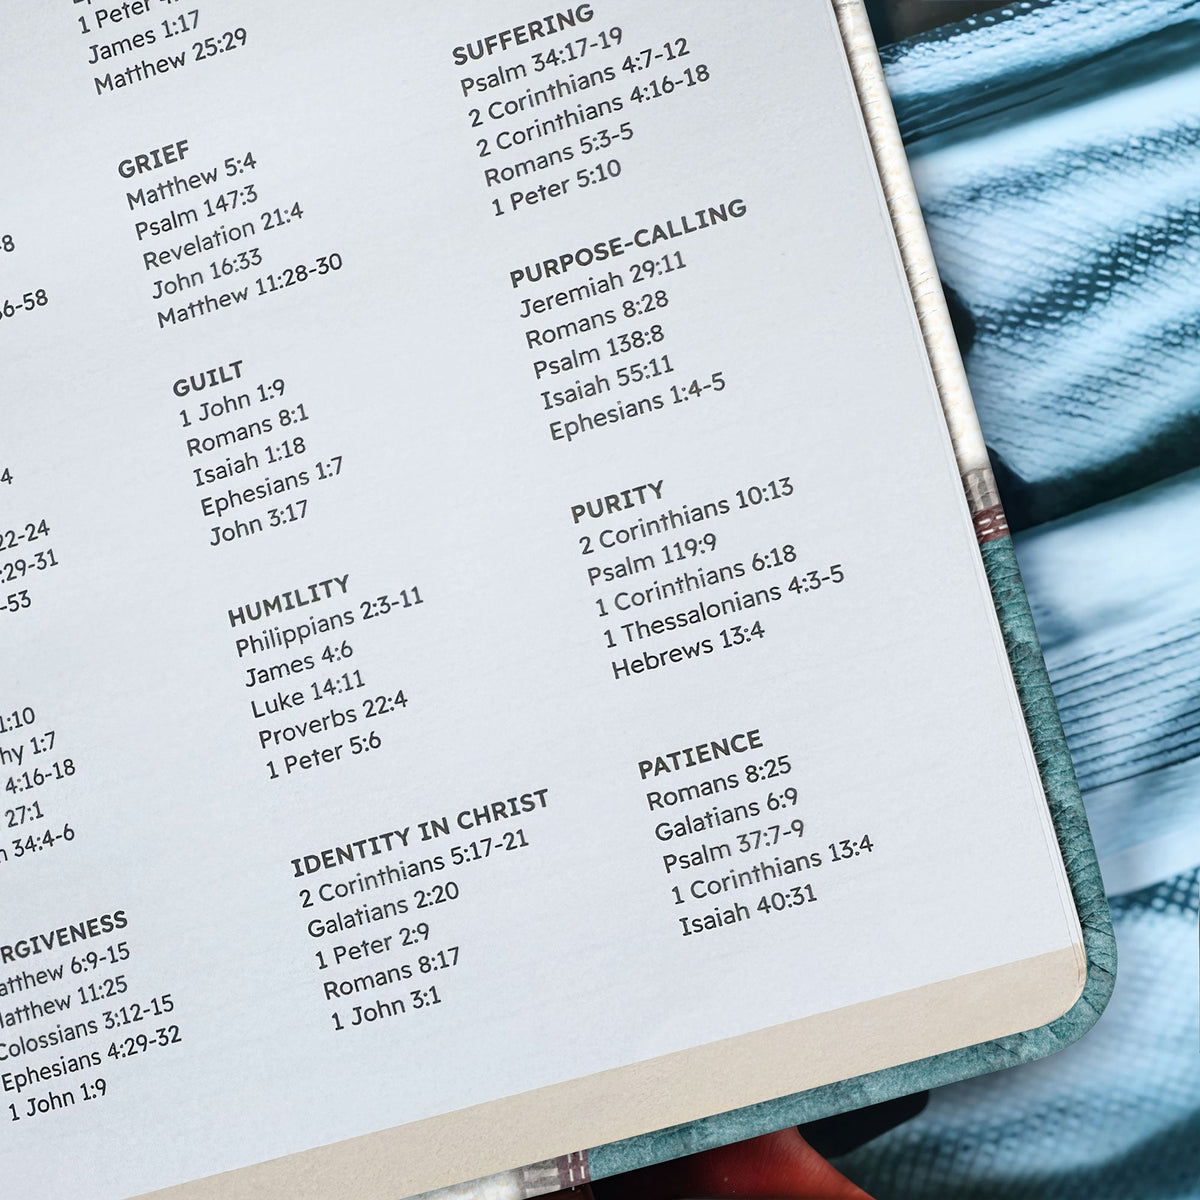 -8
56-58
4
22-24
:29-31
-53
1:10
hy 1:7
4:16-18
27:1
34:4-6
RGIVENESS
atthew 6:9-15
Matthew 11:25
Colossians 3:12-15
Ephesians 4:29-32
1 John 1:9
1 Peter
James 1:17
Matthew 25:29
GRIEF
Matthew 5:4
Psalm 147:3
Revelation 21:4
John 16:33
Matthew 11:28-30
GUILT
1 John 1:9
Romans 8:1
Isaiah 1:18
Ephesians 1:7
John 3:17
HUMILITY
Philippians 2:3-11
James 4:6
Luke 14:11
Proverbs 22:4
1 Peter 5:6
IDENTITY IN CHRIST
2 Corinthians 5:17-21
Galatians 2:20
1 Peter 2:9
Romans 8:17
1 John 3:1
SUFFERING
Psalm 34:17-19
2 Corinthians 4:7-12
2 Corinthians 4:16-18
Romans 5:3-5
1 Peter 5:10
PURPOSE-CALLING
Jeremiah 29:11
Romans 8:28
Psalm 138:8
Isaiah 55:11
Ephesians 1:4-5
PURITY
2 Corinthians 10:13
Psalm 119:9
1 Corinthians 6:18
1 Thessalonians 4:3-5
Hebrews 13:4
PATIENCE
Romans 8:25
Galatians 6:9
Psalm 37:7-9
1 Corinthians 13:4
Isaiah 40:31